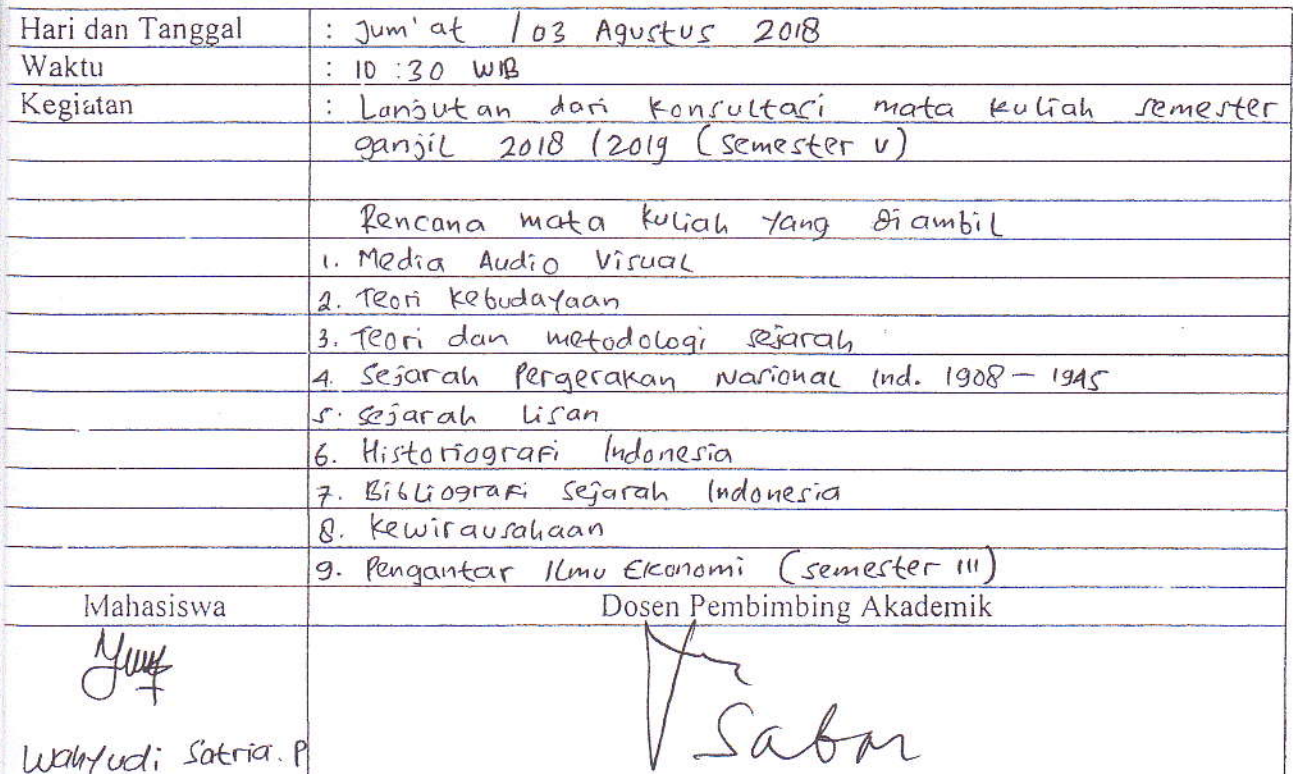 Hari dan Tanggal : Jum'at / 03 Agustus 2018
Waktu : 10:30 WIB
Kegiatan : Lanjutan dari Konsultasi mata kuliah semester
ganjil 2018 / 2019 (Semester V)
Rencana mata kuliah yang diambil
1. Media Audio Visual
2. Teori Kebudayaan
3. Teori dan metodologi sejarah
4. Sejarah Pergerakan Nasional Ind. 1908 - 1945
5. Sejarah Lisan
6. Historiografi Indonesia
7. Bibliografi Sejarah Indonesia
8. Kewirausahaan
9. Pengantar Ilmu Ekonomi (semester III)
Mahasiswa Dosen Pembimbing Akademik
Wahyudi Satria. P